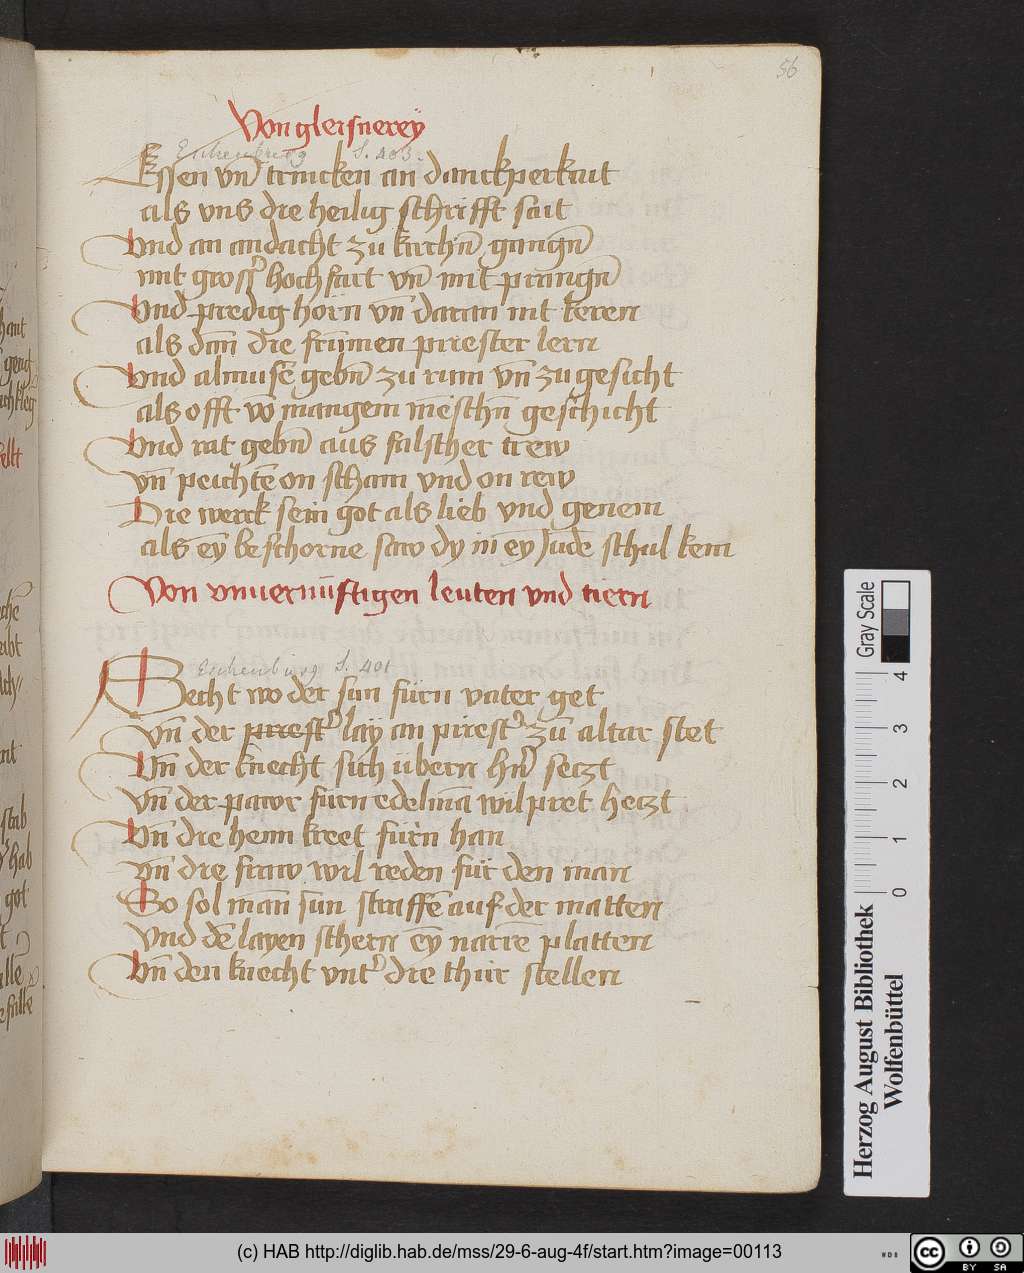 56
Von gleisnerey
Eschenburg S. 403.
Essen vn̄ trincken an danckperkait
als vns die heilig schrifft sait
Vnd an andacht zu kirchn̄ gangn̄
mit grosſ hochfart vn̄ mit prangn̄
Vnd predig hörn vn̄ daran nit keren
als dan̄ die frūmen priester lern
Vnd almusē gebn̄ zu rum vn̄ zu gesicht
als offt vō mangem mēschn̄ geschicht
Vnd rat gebn̄ aus falscher trew
vn̄ peichtē on scham vnd on rew
Die werck sein got als lieb vnd genem
als ey beschorne saw dy in̄ ey Jude schul kem
Von vnuernūftigen leuten vnd tiern
Eschenburg S. 401
Secht wo der sun fürn vater get
vn̄ der priest' lay an priest' zu altar stet
Vn̄ der knecht sich übern hn̄ seczt
vn̄ der pawr fürn edelmā wilpret heczt
Vn̄ die henn kreet fürn han
vn̄ die fraw wil reden für den man
So sol man̄ sun straffē auf der matten
Vnd dē layen schern ey narrē platten
Vn̄ den knecht vnt' die thür stellen
hant
geng
stab
hab
got
Herzog August Bibliothek
Wolfenbüttel
Gray Scale
0 1 2 3 4
(c) HAB http://diglib.hab.de/mss/29-6-aug-4f/start.htm?image=00113
WDB
cc BY SA